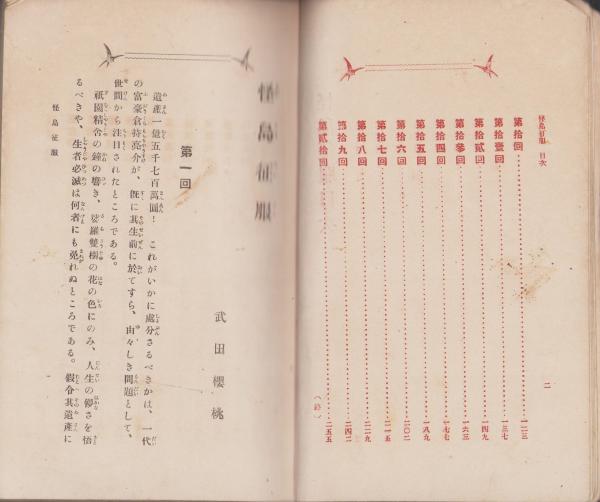 怪島征服 目次
二
第拾回……一二三
第拾壹回……一三七
第拾貳回……一四九
第拾參回……一六三
第拾四回……一七七
第拾五回……一八九
第拾六回……二〇二
第拾七回……二一五
第拾八回……二二九
第拾九回……二四二
第貳拾回……二五五
(終)
怪島征服
武田櫻桃
第一回
遺產一億五千七百萬圓! これがいかに處分さるべきかは、一代
の富豪倉持亮介が、既に其生前に於てすら、由々しき問題として、
世間から注目されたところである。
祇園精舍の鐘の響き、娑羅雙樹の花の色にのみ、人生の儚さを悟
るべきや、生者必滅は何者にも免れぬところである。假令其遺產に
怪島征服